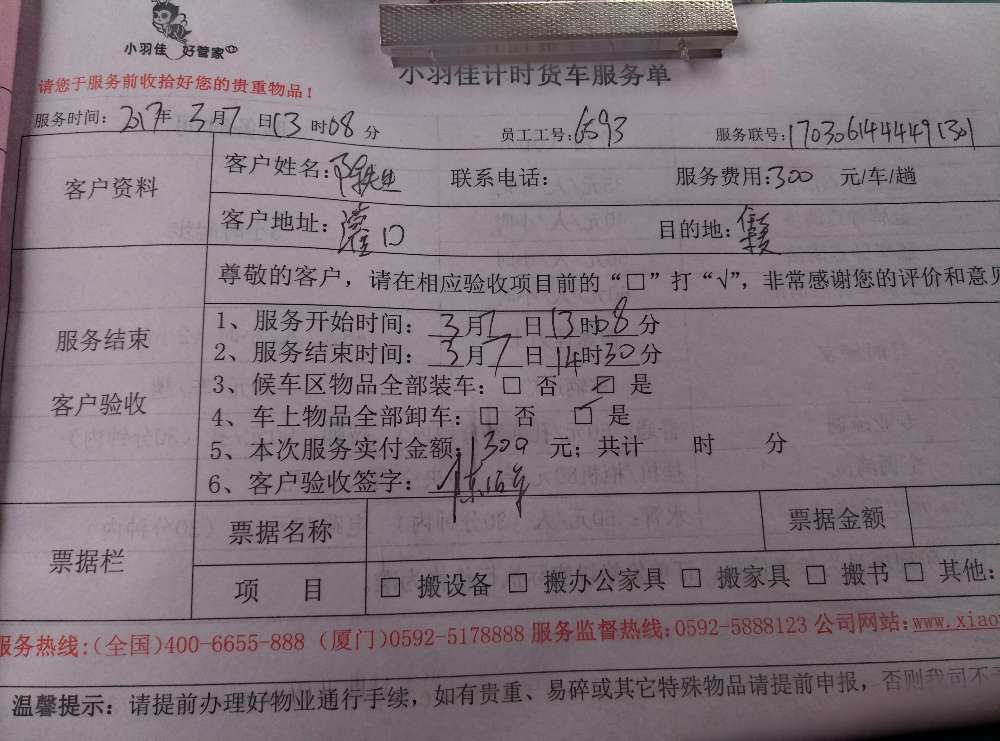 小羽佳 好管家
小羽佳计时货车服务单
请您于服务前收拾好您的贵重物品！
服务时间：2017年3月7日13时08分 员工工号：6593 服务联号：170306144449130
客户资料
客户姓名：陈先生 联系电话： 服务费用：300 元/车/趟
客户地址：灌口 目的地：
尊敬的客户，请在相应验收项目前的“□”打“√”，非常感谢您的评价和意见
服务结束
客户验收
1、服务开始时间：3月7日13时08分
2、服务结束时间：3月7日14时30分
3、候车区物品全部装车：□ 否 ☑ 是
4、车上物品全部卸车：□ 否 ☑ 是
5、本次服务实付金额：300 元；共计 时 分
6、客户验收签字：
票据栏
票据名称 票据金额
项 目 □ 搬设备 □ 搬办公家具 □ 搬家具 □ 搬书 □ 其他：
服务热线：（全国）400-6655-888（厦门）0592-5178888 服务监督热线：0592-5888123 公司网站：www.xiao
温馨提示：请提前办理好物业通行手续，如有贵重、易碎或其它特殊物品请提前申报，否则我司不